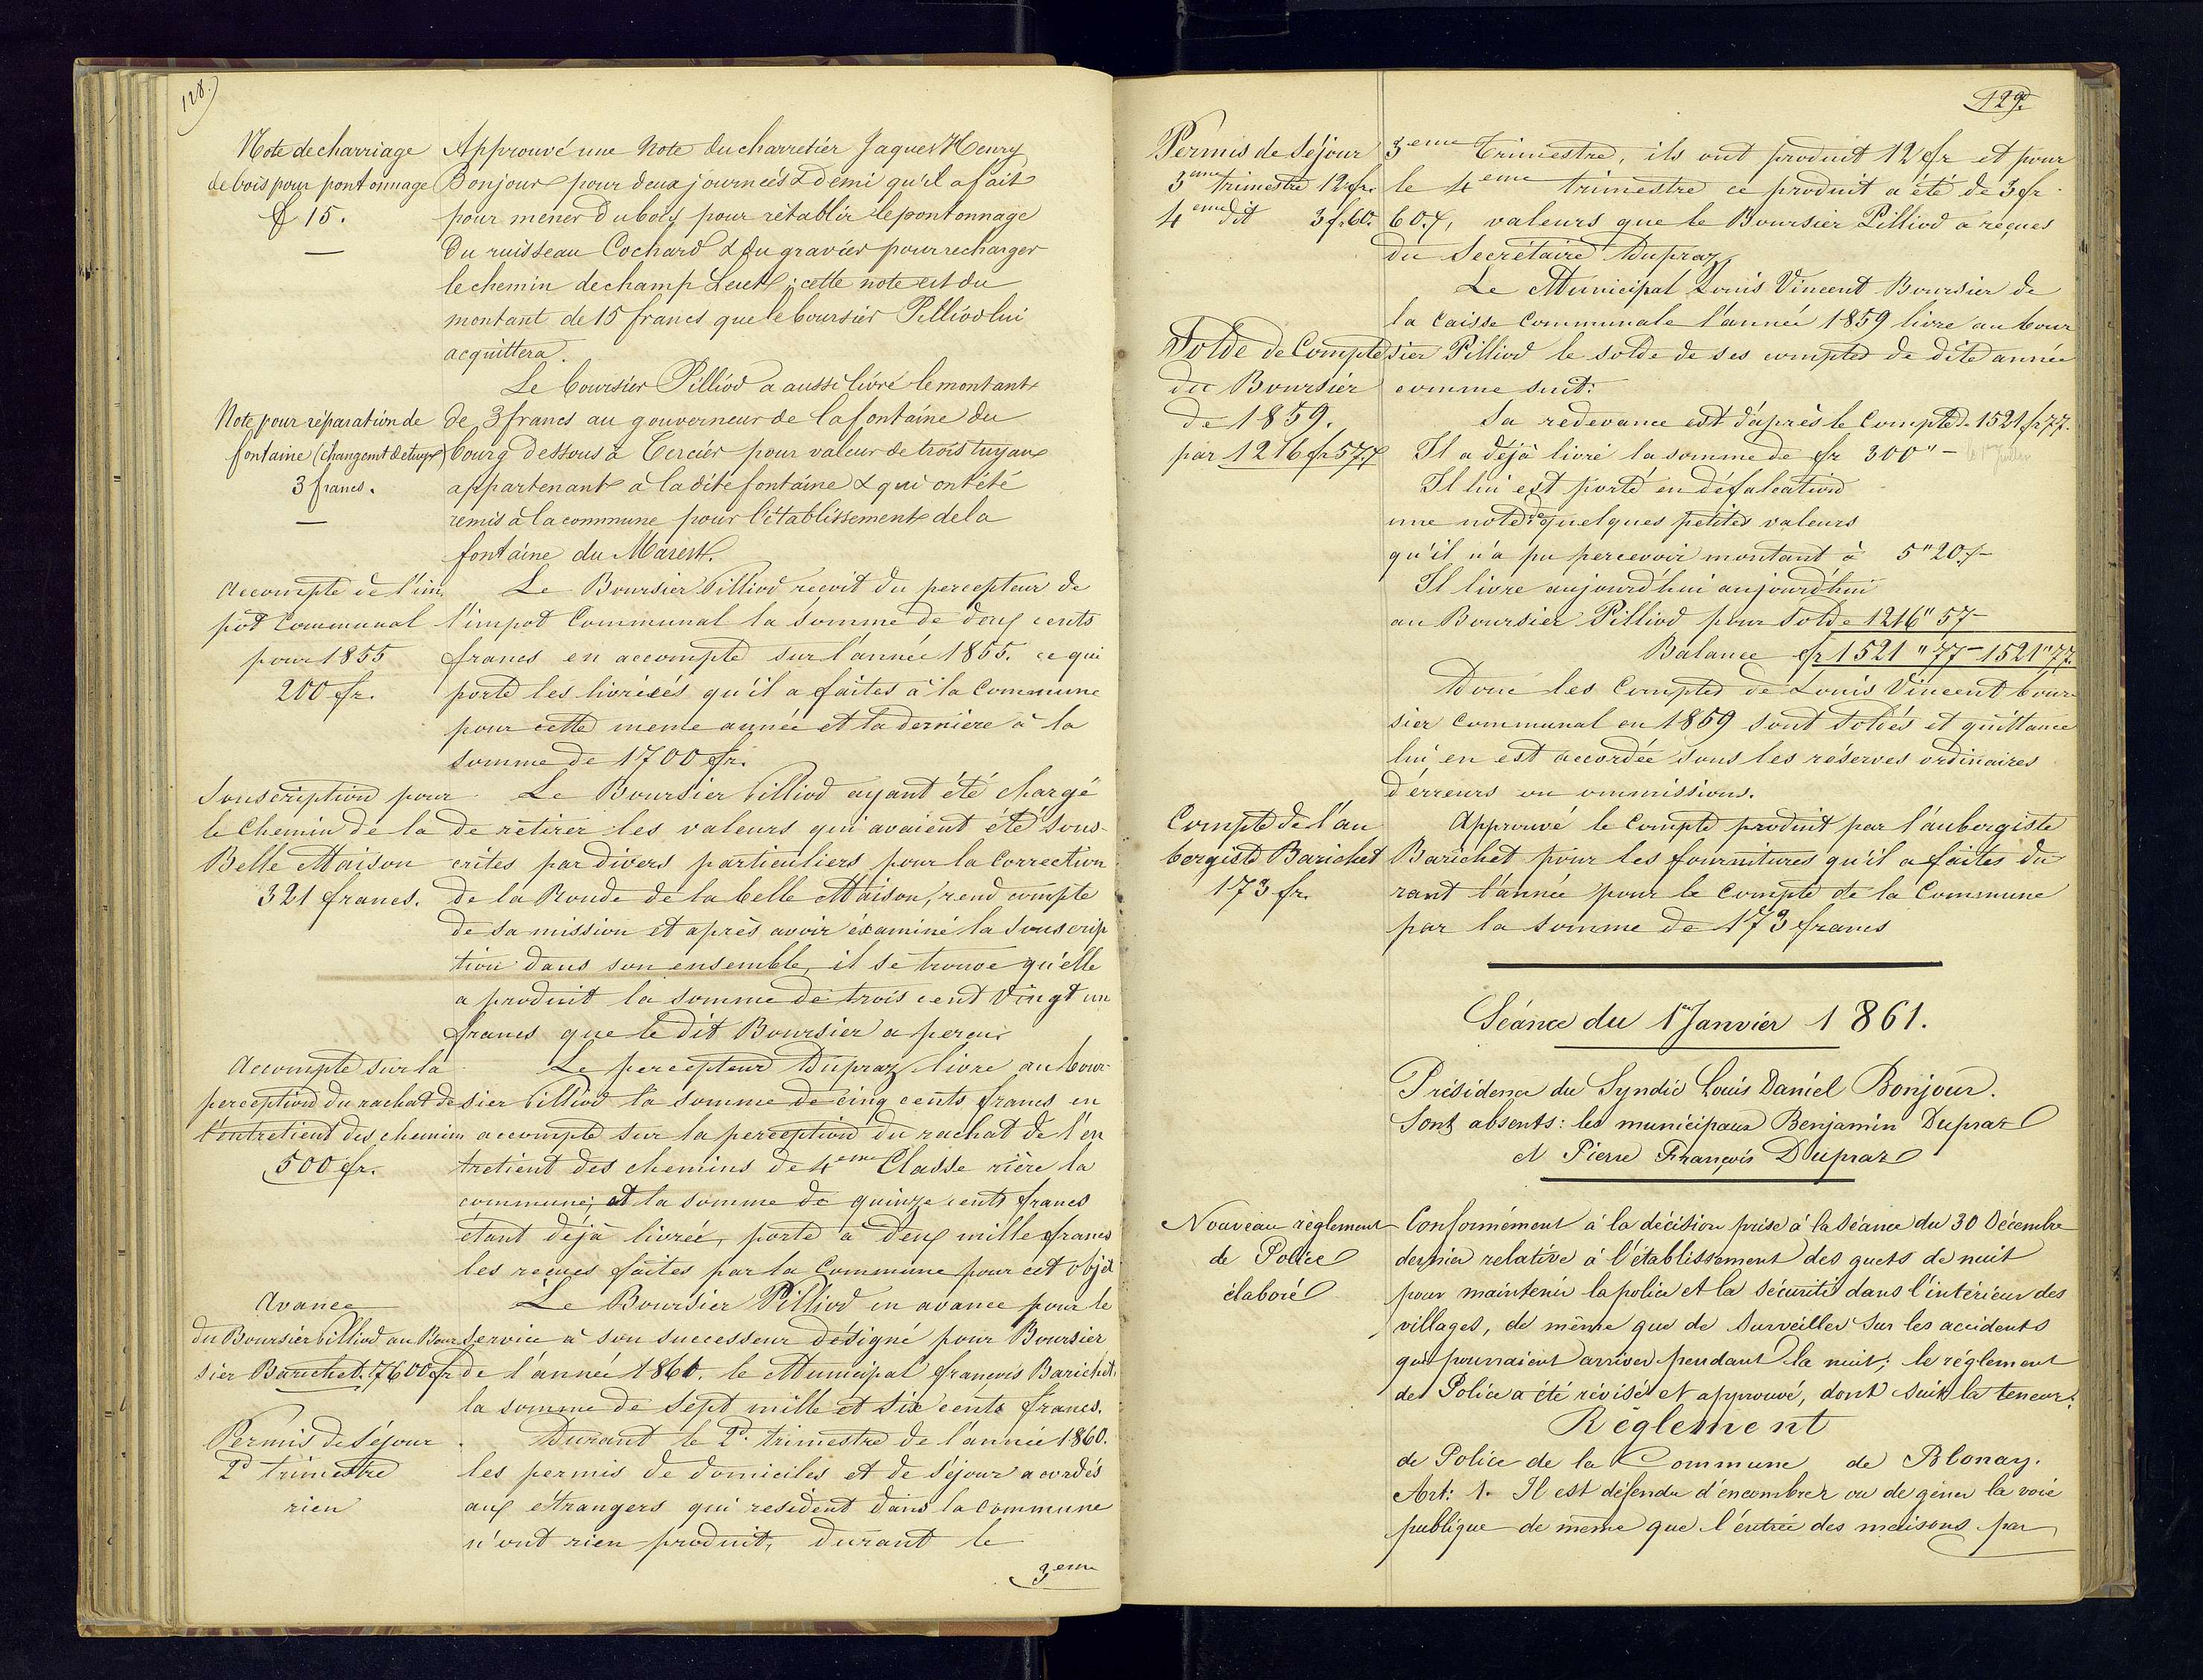 128.)
Note de charriage
de bois pour pontonnage
f 15.
Approuvé une Note du charretier Jaques Henry
Bonjour pour deux journeés & demi qu'il a fait
pour mener du bois pour rétablir le pontonnage
du ruisseau Cochard & du gravier pour recharger
le chemin de champ ; cette note est du
montant de 15 francs que le boursier Pilliod lui
acquittera.
Note pour réparation de
fontaine (changemt de tuyx)
3 francs.
Le boursier Pilliod a aussi livré le montant
de 3 francs au gouverneur de la fontaine du
bourg dessous à Tercier pour valeur de trois tuyaux
appartenant à la dite fontaine & qui ont été
remis à la commune pour l'établissement de la
fontaine du Marest.
Accompte de l'im
pôt Communal
pour 1855
200 fr.
Le Boursier Pilliod reçoit du percepteur de
l'impot Communal la somme de deux cents
francs en accompte sur l'année 1855. ce qui
porte les livrées qu'il a faites à la Commune
pour cette meme année et la derniere à la
somme de 1700 fr.
Souscription pour
le Chemin de la
Belle Maison
321 francs.
Le Boursier Pilliod ayant été chargé
de retirer les valeurs qui avaient été sous-
crites par divers particuliers pour la Correction
de la Ronde de la belle Maison, rend compte
de sa mission et après avoir éxaminé la Souscrip
tion dans son ensemble, il se trouve qu'elle
a produit la somme de trois cent vingt un
francs que le dit Boursier a perçu.
Accompte sur la
perception du rachat de
l'entretient des chemins
500 fr.
Le percepteur Dupraz livre au bour-
sier Pilliod la somme de cinq cents francs en
accompte sur la perception du rachat de l'en
tretient des chemins de 4eme Classe rière la
commune; et la somme de quinze cents francs
étant déjà livrée, porte à deux mille francs
les reçues faites par la Commune pour cet objet
Avance
du Boursier Pilliod au Bour
sier Barichet. 7600 fr
Le Boursier Pilliod en avance pour le
service à son successeur désigné pour Boursier
de l'année 1861. le Municipal françois Barichet.
la somme de Sept mille et Six cents francs.
Permis de Séjour
2d trimestre
rien
Durant le 2d. trimestre de l'année 1860.
les permis de domiciles et de séjour accordés
aux étrangers qui resident dans la commune
n'ont rien produit, durant le
3eme
129.
Permis de Séjour
3eme trimestre 12 fr.
4eme dit 3 f. 60.
3eme Trimestre, ils ont produit 12 fr et pour
le 4eme trimestre ce produit a été de 3 fr
60., valeurs que le Boursier Pilliod a reçues
du Secrétaire Dupraz,
Solde de Compte
du Boursier
de 1859.
par 1216 fr 57.
Le Municipal Louis Vincent Boursier de
la Caisse Communale l'année 1859 livre au bour
sier Pilliod le solde de ses comptes de dite année
comme suit:
Sa redevance est d'après le Compte d. 1521 fr 77.
Il a déjà livré la somme de fr 300" -
Il lui est porté en défalcation
une note de quelques petites valeurs
qu'il n'a pu percevoir montant à 5"20. -
Il livre aujourd'hui aujourd'hui
au Boursier Pilliod pour Solde 1216"57 -
Balance fr 1521"77 - 1521"77.
Donc les Comptes de Louis Vincent bour-
sier communal en 1859 sont Soldés et quittance
lui en est accordée sous les réserves ordinaires
d'érreurs ou ommissions.
Compte de l'au
bergiste Barichet
173 fr.
Approuvé le Compte produit par l'aubergiste
Barichet pour les fournitures qu'il a faites du
rant l'année pour le Compte de la Commune
par la somme de 173 francs
Séance du 1er Janvier 1861.
Présidence du Syndic Louis Daniel Bonjour.
Sont absents: les municipaux Benjamin Dupraz
et Pierre François Dupraz
Nouveau règlement
de Police
élaboré
Conformément à la décision prise à la Séance du 30 Décembre
dernier relative à l'établissement des guets de nuit
pour maintenir la police et la sécurité dans l'intérieur des
villages, de même que de surveiller sur les accidents
qui pourraient arriver pendant la nuit; le réglement
de Police a été révisé et approuvé, dont suit la teneur:
Réglement
de Police de la Commune de Blonay.
Art: 1. Il est défendu d'éncombrer ou de gêner la voie
publique de même que l'éntrée des maisons par